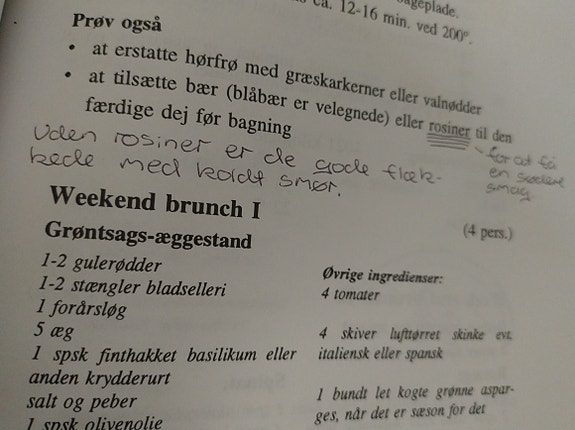 bageplade.
ca. 12-16 min. ved 200°.
Prøv også
• at erstatte hørfrø med græskarkerner eller valnødder
• at tilsætte bær (blåbær er velegnede) eller rosiner til den
færdige dej før bagning
for at få
en sødere
smag
Uden rosiner er de gode flæk-
kede med koldt smør.
Weekend brunch I
Grøntsags-æggestand
(4 pers.)
1-2 gulerødder
1-2 stængler bladselleri
1 forårsløg
5 æg
1 spsk finthakket basilikum eller
anden krydderurt
salt og peber
1 spsk olivenolie
Øvrige ingredienser:
4 tomater
4 skiver lufttørret skinke evt.
italiensk eller spansk
1 bundt let kogte grønne aspar-
ges, når det er sæson for det